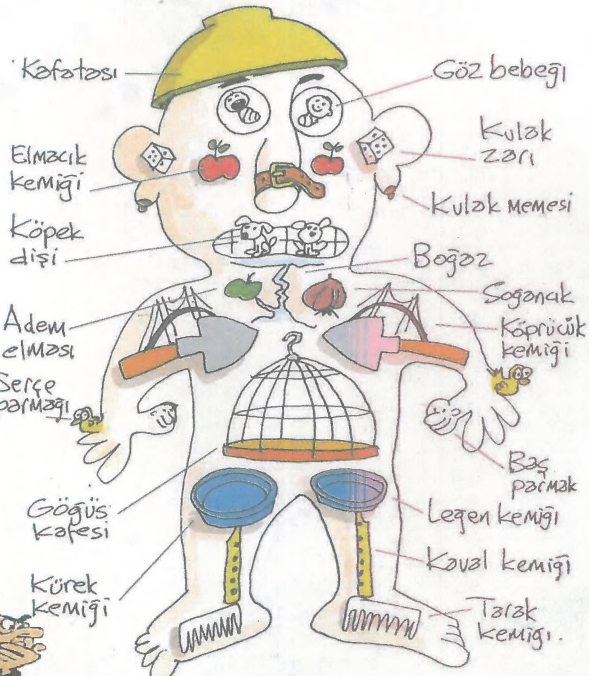 Kafatası
Göz bebeği
Elmacık
kemiği
Kulak
zarı
Kulak memesi
Köpek
dişi
Boğaz
Soğancık
Adem
elması
Köprücük
kemiği
Serçe
parmağı
Baş
parmak
Göğüs
kafesi
Leğen kemiği
Kaval kemiği
Kürek
kemiği
Tarak
kemiği.